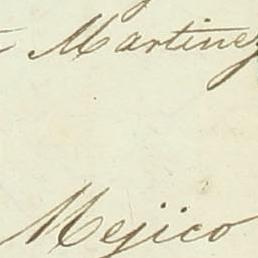 Martinez
Mejico